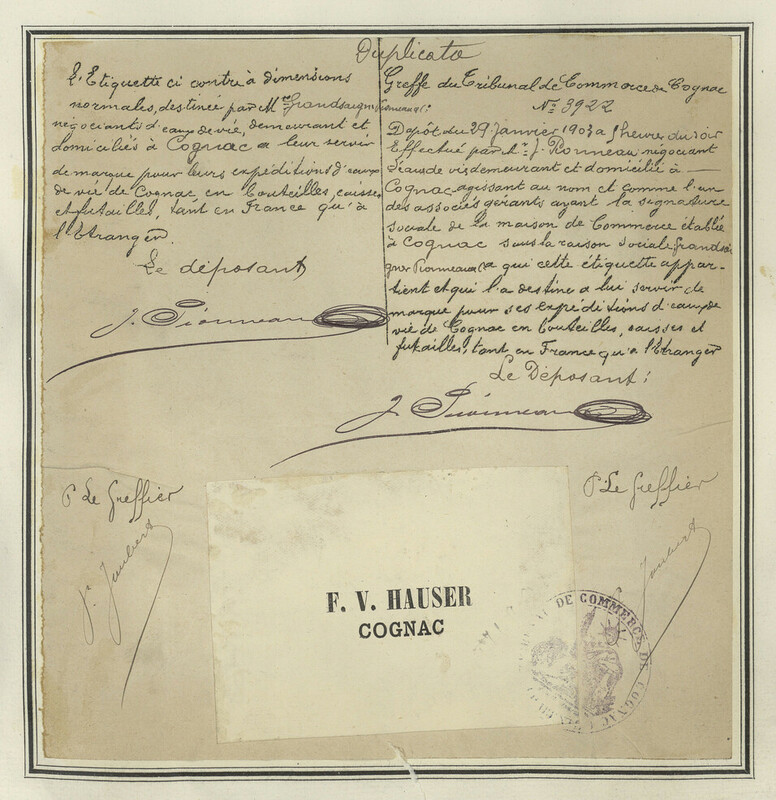 Duplicata
L'Etiquette ci contre à dimensions
normales, destinée par Mrs
négociants d'eaux de vie, demeurant et
domiciliés à Cognac a leur servir
de marque pour leurs expéditions d'eaux
de vie de Cognac en bouteilles, caisses
et futailles, tant en France qu'à
l'Etranger.
Le déposant,
Greffe du Tribunal de Commerce de Cognac
No 3922
Dépôt du 29 Janvier 1903 a heures du soir
Effectué par Mr. J. Pionneau négociant
d'eau de vie demeurant et domicilié à
Cognac, agissant au nom et comme l'un
des associés gérants ayant la signature
sociale de la maison de Commerce établie
à Cognac sous la raison sociale Grandsai
gne Pionneau a qui cette étiquette appar-
tient et qui l'a destine a lui servir de
marque pour ses expéditions d'eaux de
vie de Cognac en bouteilles, caisses et
futailles, tant en France qu'a l'Etranger
Le Déposant:
J. Pionneau
J. Pionneau
P. Le Greffier
P. Le Greffier
Joubert
Joubert
F. V. HAUSER
COGNAC
DE COMMERCE DE COGNAC